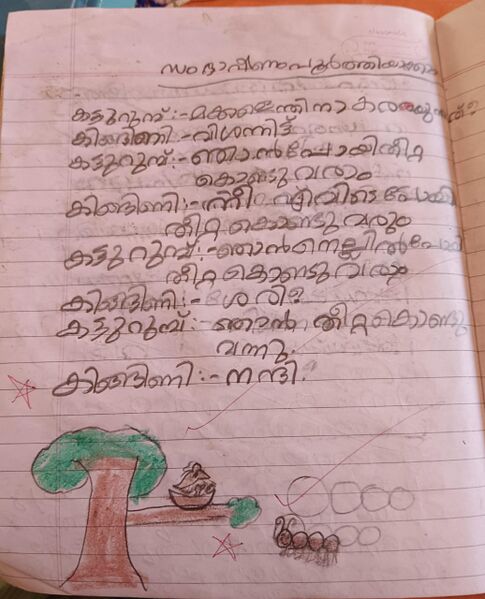 സംഭാഷണം പൂർത്തിയാക്കാം
കട്ടുറുമ്പ് :- മക്കളെന്തിനാ കരയുന്നത്?
കിങ്ങിണി :- വിശന്നിട്ട്
കട്ടുറുമ്പ് :- ഞാൻ പോയി തീറ്റ
കൊണ്ടു വരാം
കിങ്ങിണി :- നീ എവിടെ പോയി
തീറ്റ കൊണ്ടു വരും
കട്ടുറുമ്പ് :- ഞാൻ നെല്ലിൽ പോയി
തീറ്റ കൊണ്ടു വരാം
കിങ്ങിണി :- ശരി?
കട്ടുറുമ്പ് :- ഞാൻ തീറ്റ കൊണ്ടു
വന്നു.
കിങ്ങിണി :- നന്ദി.